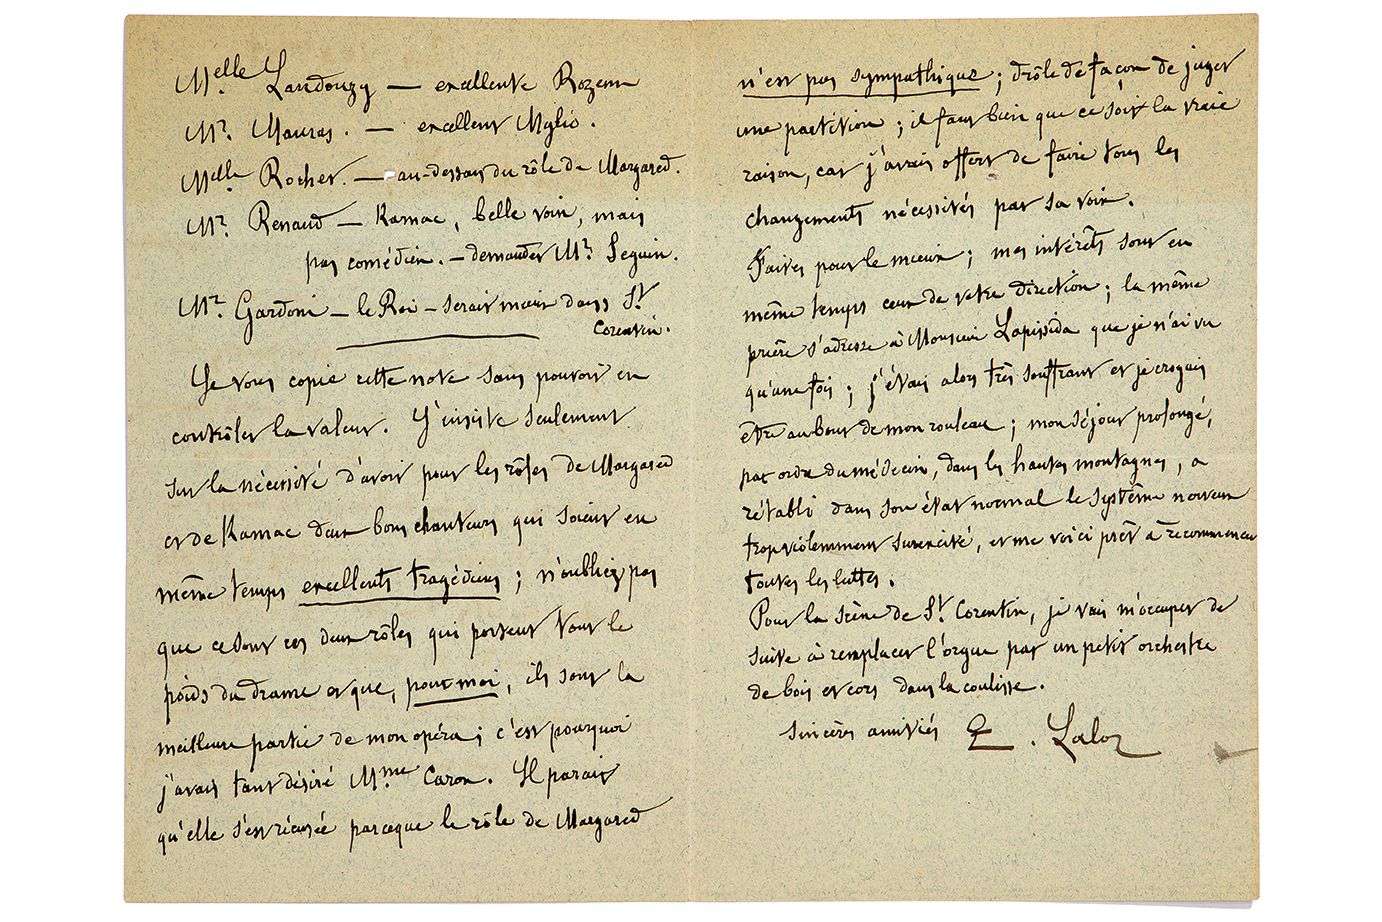 Melle Landouzy — excellente Rozenn
Mr. Mauras. — excellent Mylio.
Melle Rocher. — au-dessous du rôle de Margared.
Mr. Renaud — Karnac, belle voix, mais
pas comédien. — demander Mr. Seguin.
Mr. Gardoni — le Roi — serait mieux dans St
Corentin.
Je vous copie cette note sans pouvoir en
contrôler la valeur. J'insiste seulement
sur la nécessité d'avoir pour les rôles de Margared
et de Karnac deux bons chanteurs qui soient en
même temps excellents tragédiens ; n'oubliez pas
que ce sont ces deux rôles qui portent tout le
poids du drame et que, pour moi, ils sont la
meilleure partie de mon opéra ; c'est pourquoi
j'avais tant désiré Mme Caron. Il parait
qu'elle s'est récusée parceque le rôle de Margared
n'est pas sympathique ; drôle de façon de juger
une partition ; il faut bien que ce soit la vraie
raison, car j'avais offert de faire tous les
changements nécessités par sa voix.
Faites pour le mieux ; mes intérêts sont en
même temps ceux de votre direction ; la même
prière s'adresse à Monsieur Lapissida que je n'ai vu
qu'une fois ; j'étais alors très souffrant et je croyais
être au bout de mon rouleau ; mon séjour prolongé,
par ordre du médecin, dans les hautes montagnes, a
rétabli dans son état normal le système nerveux
trop violemment surexcité, et me voici prêt à recommencer
toutes les luttes.
Pour la scène de St. Corentin, je vais m'occuper de
suite à remplacer l'orgue par un petit orchestre
de bois et cors dans la coulisse.
Sincères amitiés E. Lalo